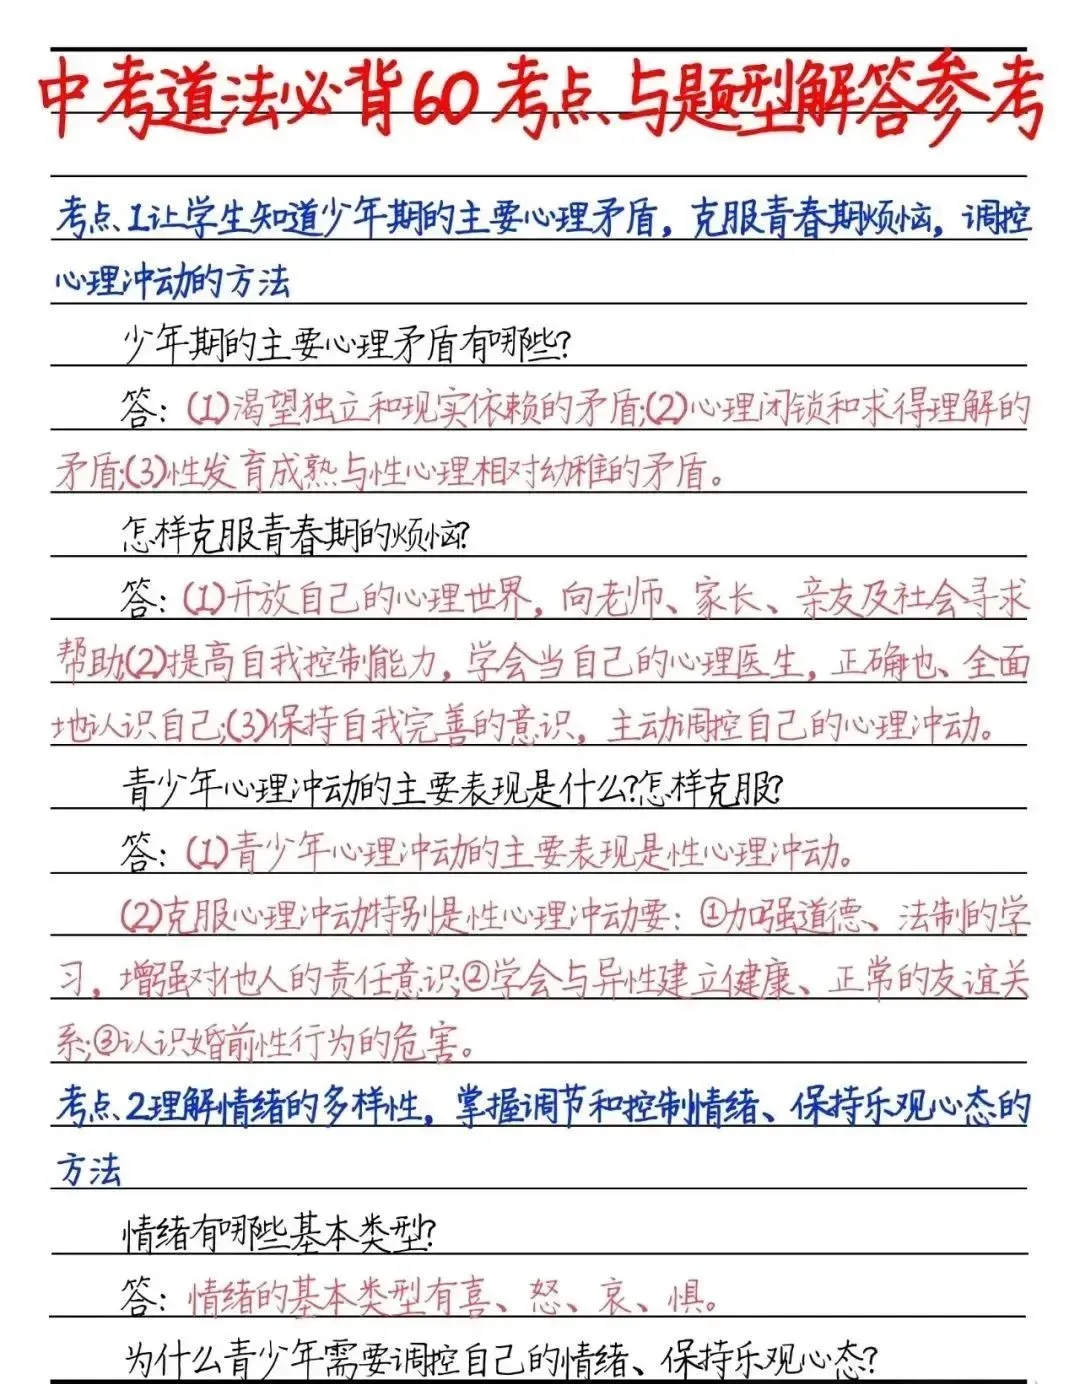 中考道法必背60考点与题型解答参考
考点1让学生知道少年期的主要心理矛盾，克服青春期烦恼，调控
心理冲动的方法
少年期的主要心理矛盾有哪些?
答：(1)渴望独立和现实依赖的矛盾;(2)心理闭锁和求得理解的
矛盾;(3)性发育成熟与性心理相对幼稚的矛盾。
怎样克服青春期的烦恼?
答：(1)开放自己的心理世界，向老师、家长、亲友及社会寻求
帮助;(2)提高自我控制能力，学会当自己的心理医生，正确地、全面
地认识自己;(3)保持自我完善的意识，主动调控自己的心理冲动。
青少年心理冲动的主要表现是什么?怎样克服?
答：(1)青少年心理冲动的主要表现是性心理冲动。
(2)克服心理冲动特别是性心理冲动要：①加强道德、法制的学
习，增强对他人的责任意识;②学会与异性建立健康、正常的友谊关
系;③认识婚前性行为的危害。
考点2理解情绪的多样性，掌握调节和控制情绪、保持乐观心态的
方法
情绪有哪些基本类型?
答：情绪的基本类型有喜、怒、哀、惧。
为什么青少年需要调控自己的情绪、保持乐观心态?